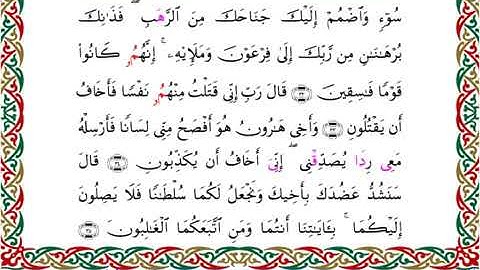 سُوٓءٖ وَٱضۡمُمۡ إِلَيۡكَ جَنَاحَكَ مِنَ ٱلرَّهَبِۖ فَذَٰنِكَ
بُرۡهَٰنَٰنِ مِن رَّبِّكَ إِلَىٰ فِرۡعَوۡنَ وَمَلَإِيْهِۦٓۚ إِنَّهُمُۥ كَانُواْ
قَوۡمٗا فَٰسِقِينَ ۝ قَالَ رَبِّ إِنِّي قَتَلۡتُ مِنۡهُمُۥ نَفۡسٗا فَأَخَافُ
أَن يَقۡتُلُونِ ۝ وَأَخِي هَٰرُونُ هُوَ أَفۡصَحُ مِنِّي لِسَانٗا فَأَرۡسِلۡهُ
مَعِي رِدٗا يُصَدِّقۡنِيۖ إِنِّيَ أَخَافُ أَن يُكَذِّبُونِ ۝ قَالَ
سَنَشُدُّ عَضُدَكَ بِأَخِيكَ وَنَجۡعَلُ لَكُمَا سُلۡطَٰنٗا فَلَا يَصِلُونَ
إِلَيۡكُمَا ۚ بِـَٔايَٰتِنَآ أَنتُمَا وَمَنِ ٱتَّبَعَكُمَا ٱلۡغَٰلِبُونَ ۝